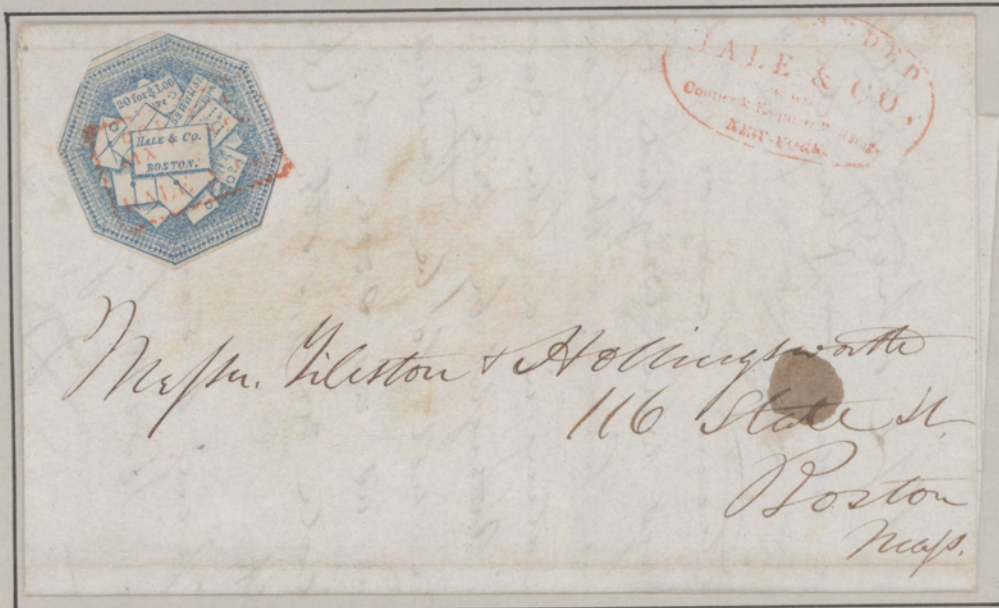 20 for $1.00
HALE & CO.
BOSTON.
HALE & CO.,
Courier & Enquirer
NEW-YORK.
Messrs. Tileston & Hollingsworth
116 State St.
Boston
Mass.